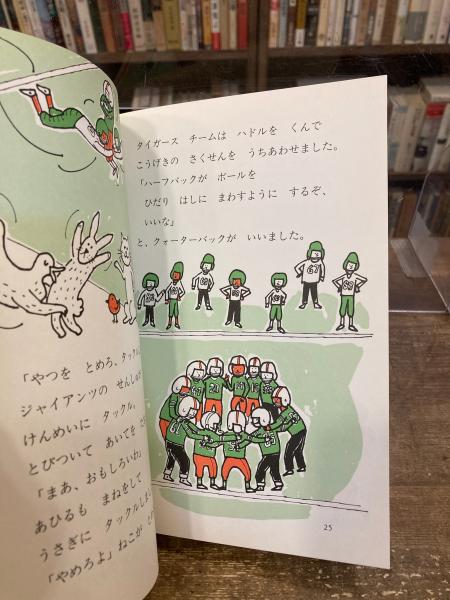 「やつを とめろ、タックル
ジャイアンツの せんしゅ
けんめいに タックル。
とびついて あいてを
「まあ、おもしろいわ」
あひるも まねをして
うさぎに タックルしま
「やめろよ」ねこが
タイガース チームは ハドルを くんで
こうげきの さくせんを うちあわせました。
「ハーフバックが ボールを
ひだり はしに まわすように するぞ、
いいな」
と、クォーターバックが いいました。
67
25